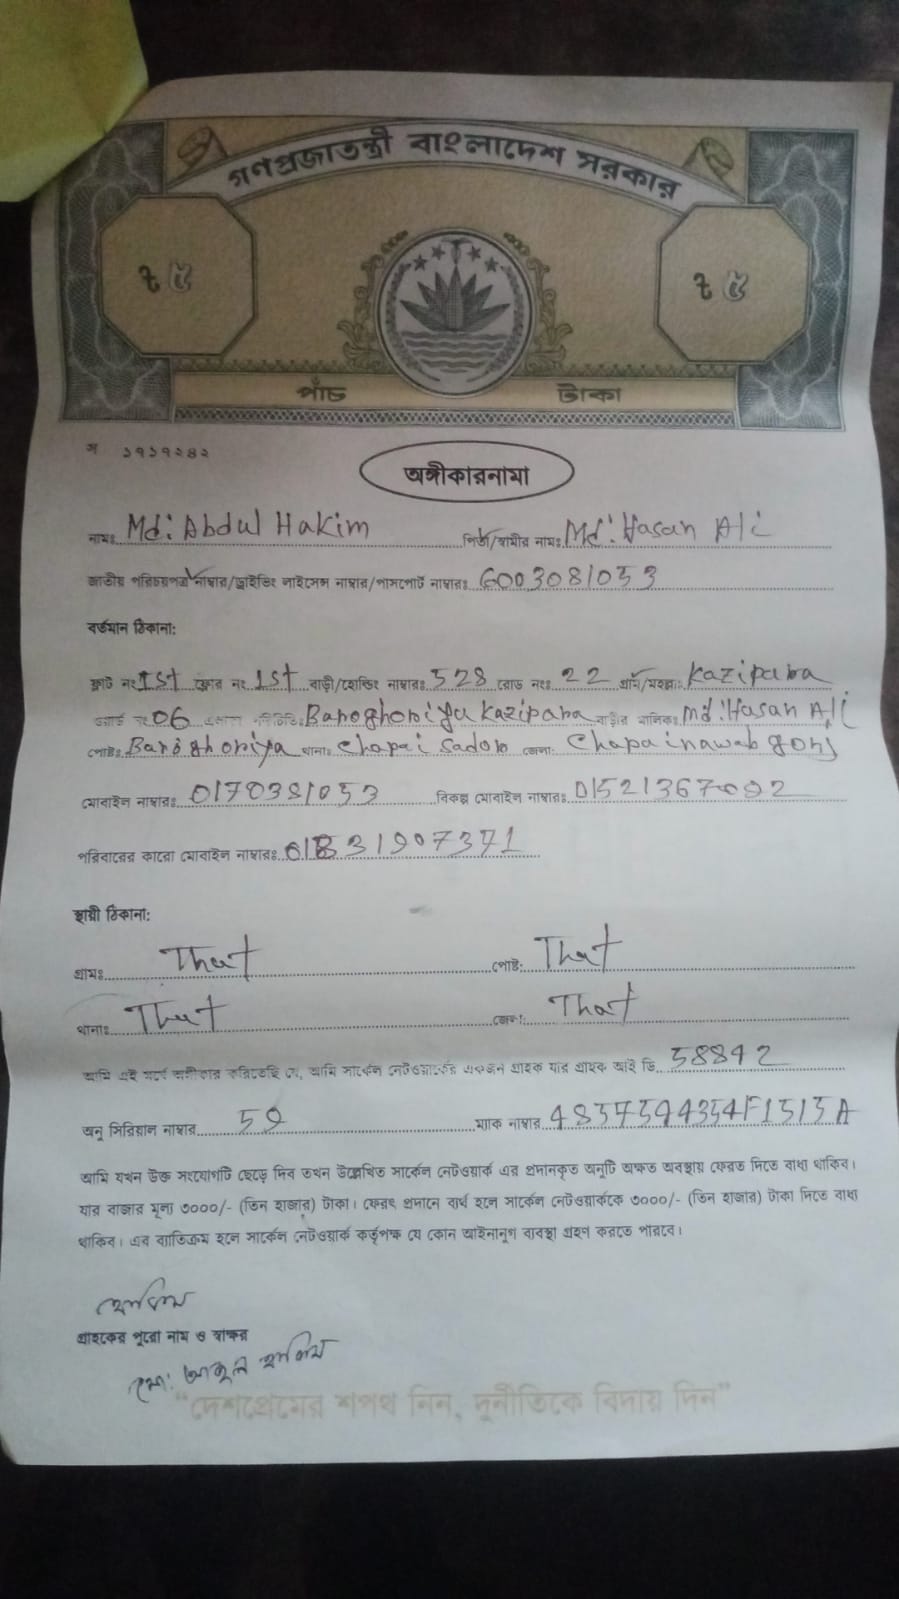 গণপ্রজাতন্ত্রী বাংলাদেশ সরকার
৳ ৫ ৳ ৫
পাঁচ টাকা
১৭১৭২৪২
অঙ্গীকারনামা
নামঃ Md: Abdul Hakim পিতা/স্বামীর নামঃ Md: Hasan Ali
জাতীয় পরিচয়পত্র নাম্বার/ড্রাইভিং লাইসেন্স নাম্বার/পাসপোর্ট নাম্বারঃ 6003081053
বর্তমান ঠিকানা:
ফ্লাট নং 1st ফ্লোর নং 1st বাড়ী/হোল্ডিং নাম্বারঃ 528 রোড নংঃ 22 গ্রাম/মহল্লাঃ Kazipara
ওয়ার্ড নং 06 এলাকা পরিচিতিঃ Baroghoriya Kazipara বাড়ীর মালিকঃ Md: Hasan Ali
পোষ্টঃ Baroghoriya থানাঃ Chapai Sador জেলাঃ Chapainawabgonj
মোবাইল নাম্বারঃ বিকল্প মোবাইল নাম্বারঃ
পরিবারের কারো মোবাইল নাম্বারঃ
স্থায়ী ঠিকানা:
গ্রামঃ That পোষ্ট: That
থানাঃ That জেলা: That
আমি এই মর্মে অঙ্গীকার করিতেছি যে, আমি সার্কেল নেটওয়ার্কের একজন গ্রাহক যার গ্রাহক আই ডি 58842
অনু সিরিয়াল নাম্বার 59 ম্যাক নাম্বার
আমি যখন উক্ত সংযোগটি ছেড়ে দিব তখন উল্লেখিত সার্কেল নেটওয়ার্ক এর প্রদানকৃত অনুটি অক্ষত অবস্থায় ফেরত দিতে বাধ্য থাকিব।
যার বাজার মূল্য ৩০০০/- (তিন হাজার) টাকা। ফেরৎ প্রদানে ব্যর্থ হলে সার্কেল নেটওয়ার্ককে ৩০০০/- (তিন হাজার) টাকা দিতে বাধ্য
থাকিব। এর ব্যতিক্রম হলে সার্কেল নেটওয়ার্ক কর্তৃপক্ষ যে কোন আইনানুগ ব্যবস্থা গ্রহণ করতে পারবে।
হাকিম
গ্রাহকের পুরো নাম ও স্বাক্ষর
মো: আব্দুল হাকিম
"দেশপ্রেমের শপথ নিন, দুর্নীতিকে বিদায় দিন"